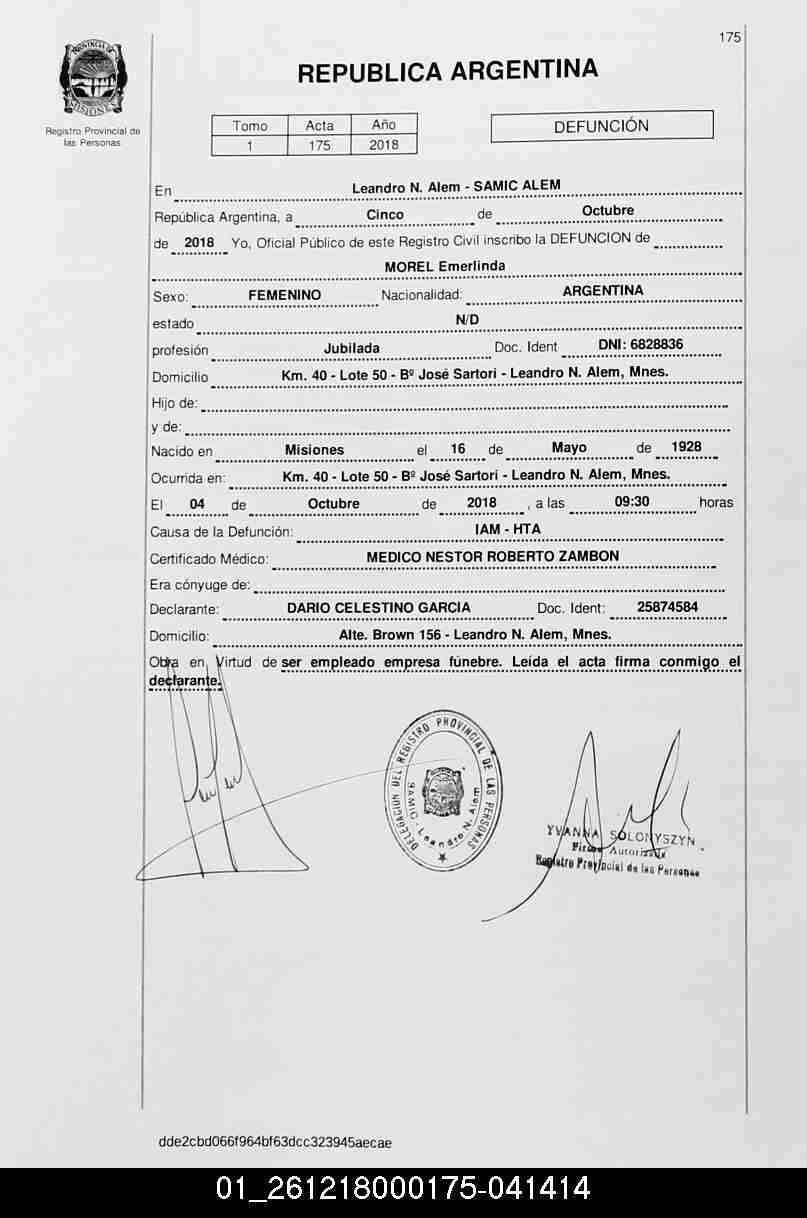 175
PROVINCIA DE
MISIONES
Registro Provincial de
las Personas
REPUBLICA ARGENTINA
Tomo Acta Año
1 175 2018
DEFUNCIÓN
En Leandro N. Alem - SAMIC ALEM
República Argentina, a Cinco de Octubre
de 2018 Yo, Oficial Público de este Registro Civil inscribo la DEFUNCION de
MOREL Emerlinda
Sexo: FEMENINO Nacionalidad: ARGENTINA
estado N/D
profesión Jubilada Doc. Ident DNI: 6828836
Domicilio Km. 40 - Lote 50 - Bº José Sartori - Leandro N. Alem, Mnes.
Hijo de:
y de:
Nacido en Misiones el 16 de Mayo de 1928
Ocurrida en: Km. 40 - Lote 50 - Bº José Sartori - Leandro N. Alem, Mnes.
El 04 de Octubre de 2018 , a las 09:30 horas
Causa de la Defunción: IAM - HTA
Certificado Médico: MEDICO NESTOR ROBERTO ZAMBON
Era cónyuge de:
Declarante: DARIO CELESTINO GARCIA Doc. Ident: 25874584
Domicilio: Alte. Brown 156 - Leandro N. Alem, Mnes.
Obra en Virtud de ser empleado empresa fúnebre. Leída el acta firma conmigo el
declarante.
DELEGACION DEL REGISTRO PROVINCIAL DE LAS PERSONAS
SAMIC - Leandro N. Alem
YVANNA SOLONYSZYN
Firma Autorizada
Registro Provincial de las Personas
dde2cbd066f964bf63dcc323945aecae
01_261218000175-041414